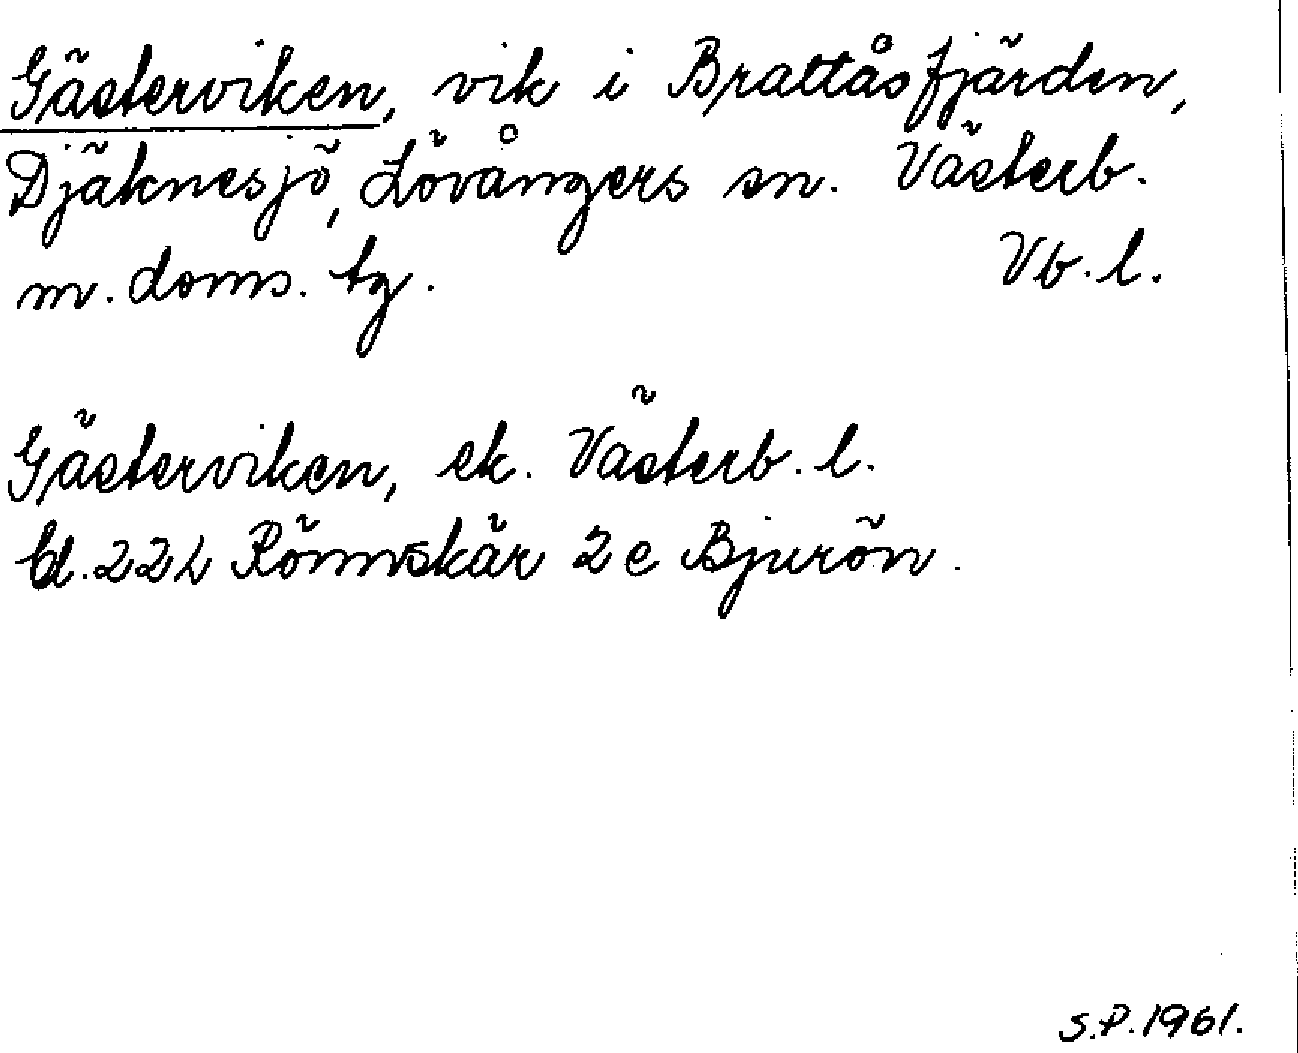 Gästerviken, vik i Brattåsfjärden,
Djäknesjö, Lövångers sn. Västerb.
m. doms. tg. Vb. l.
Gästerviken, ek. Västerb. l.
bl. 22L Rönnskär 2e Bjurön.
S.P. 1961.